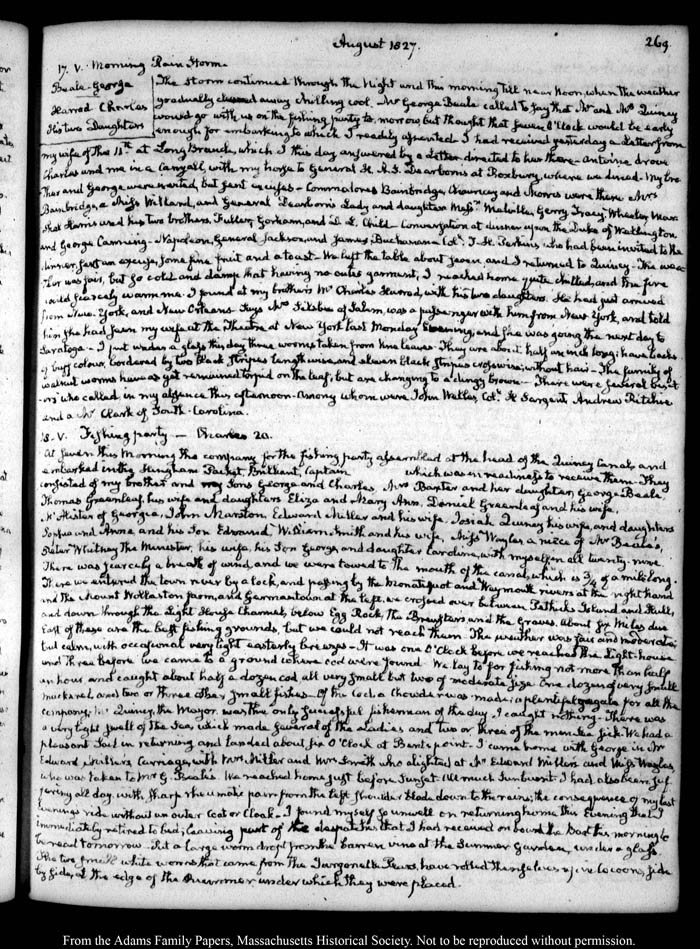 August 1827.
269
17. V. Morning Rain Storm.
Beale. George
Harrod Charles
His two Daughters
The Storm continued through the Night and this morning till near Noon, when the weather
gradually cleared away chilling cool. Mr George Beale called to say that Mr and Mrs Quincy
would go with us on the fishing party to-morrow but thought that seven O'Clock would be early
enough for embarking to which I readily assented. I had received yesterday a Letter from
my wife of the 11th at Long Branch, which I this day answered by a Letter directed to her there. Antoine drove
Charles and me in a Carryall, with my horse to General H. A. S. Dearborn's at Roxbury, where we dined. My bro-
ther and George were invited, but sent excuses. Commodores Bainbridge, Chauncey and Morris were there Mrs
Bainbridge, a Miss Willard, and General Dearborn's Lady and daughter Messrs Melville, Gerry, Tracy, Wheeler, Mar-
shal Harris and his two brothers, Fuller, Gorham, and D. L. Child. Conversation at dinner upon the Duke of Wellington
and George Canning. Napoleon, General Jackson, and James Buchanan Coll. T. H. Perkins who had been invited to the
dinner, sent an excuse, some fine fruit and a toast. We left the table about seven, and I returned to Quincy. The wea-
ther was fair, but so cold and damp that having no outer garment, I reached home quite chilled, and the fire
could scarcely warm me. I found at my brother's Mr Charles Harrod, with his two daughters. He had just arrived
from New-York, and New Orleans. Says Mrs of Salem, was a passenger with him from New York, and told
him she had seen my wife at the Theatre at New York last Monday Evening, and she was going the next day to
Saratoga. I put under a glass this day three worms taken from vine leaves. They are about half an inch long; have backs
of buff colour, bordered by two black stripes lengthwise and eleven black stripes crosswise; without hair. The family of
walnut worms have as yet remained torpid on the leaf, but are changing to a dingy brown. There were several visit-
ors who called in my absence this afternoon. Among whom were John Welles, Coll. H Sargent, Andrew Ritchie
and a Mr Clark of South-Carolina.
18. V. Fishing party — Charles 20.
At seven this Morning the company for the fishing party assembled at the head of the Quincy Canal, and
embarked in the Hingham Packet, Brilliant, Captain which was in readiness to receive them. They
consisted of my brother and my Sons George and Charles, Mrs Baxter and her daughter, George Beale,
Thomas Greenleaf, his wife and daughters Eliza and Mary Ann, Daniel Greenleaf and his wife,
of Georgia, John Marston, Edward Miller and his wife, Josiah Quincy his wife, and daughters
Sophia and Anna and his Son Edmund, William Smith and his wife, Miss Wayles, a niece of Mr Beale's,
Peter Whitney the Minister, his wife, his Son George, and daughter Caroline, with myself in all twenty-nine.
There was scarcely a breath of wind, and we were towed to the mouth of the canal, which is 3/4 of a mile long.
There we entered the town river by a lock, and passing by the Monatiquot and Weymouth rivers at the right hand
and the Mount Wollaston farm, and Germantown at the left, we crossed over between Pattick's Island and Hull,
and down through the Light House Channel, below Egg Rock, the Brewsters and the Graves, about six Miles due
East of these are the best fishing grounds, but we could not reach them. The weather was fair and moderate;
but calm, with occasional very light easterly breezes. It was one O'Clock before we reached the Light-house
and three before we came to a ground where cod were found. We lay to for fishing not more than half
an hour and caught about half a dozen cod all very small but two of moderate size. One dozen of very small
mackerel and two or three other small fishes. Of the cod, a chowder was made; a plentiful regale for all the
company. Mr Quincy, the Mayor was the only successful fisherman of the day. I caught nothing. There was
a very light swell of the Sea, which made several of the Ladies and two or three of the men Sea sick. We had a
pleasant Sail in returning and landed about six O'Clock at Bent's point. I came home with George in Mr
Edward Miller's Carriage, with Mrs Miller and Mrs Smith who alighted at Mr Edward Miller's and Miss Wayles,
who was taken to Mr G. Beale's. We reached home just before Sunset. All much Sunburnt. I had also been suf-
fering all day with sharp rheumatic pain from the left shoulder blade down to the reins; the consequence of my last
evening's ride without an outer Coat or Cloak. I found myself so unwell on returning home this Evening that I
immediately retired to bed; leaving part of the despatches that I had received on board the Boat this morning to
be read tomorrow. Put a large worm dropt from the barren vine at the Summer Garden, under a glass.
The two small white worms that came from the Jargonelle Pears, have rolled themselves up in cocoons, side
by side, at the edge of the under which they were placed.
From the Adams Family Papers, Massachusetts Historical Society. Not to be reproduced without permission.